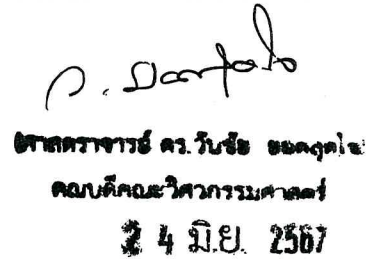 ศาสตราจารย์ ดร.วันชัย ยอดสุดใจ
คณบดีคณะวิศวกรรมศาสตร์
2 4 มิ.ย. 2567